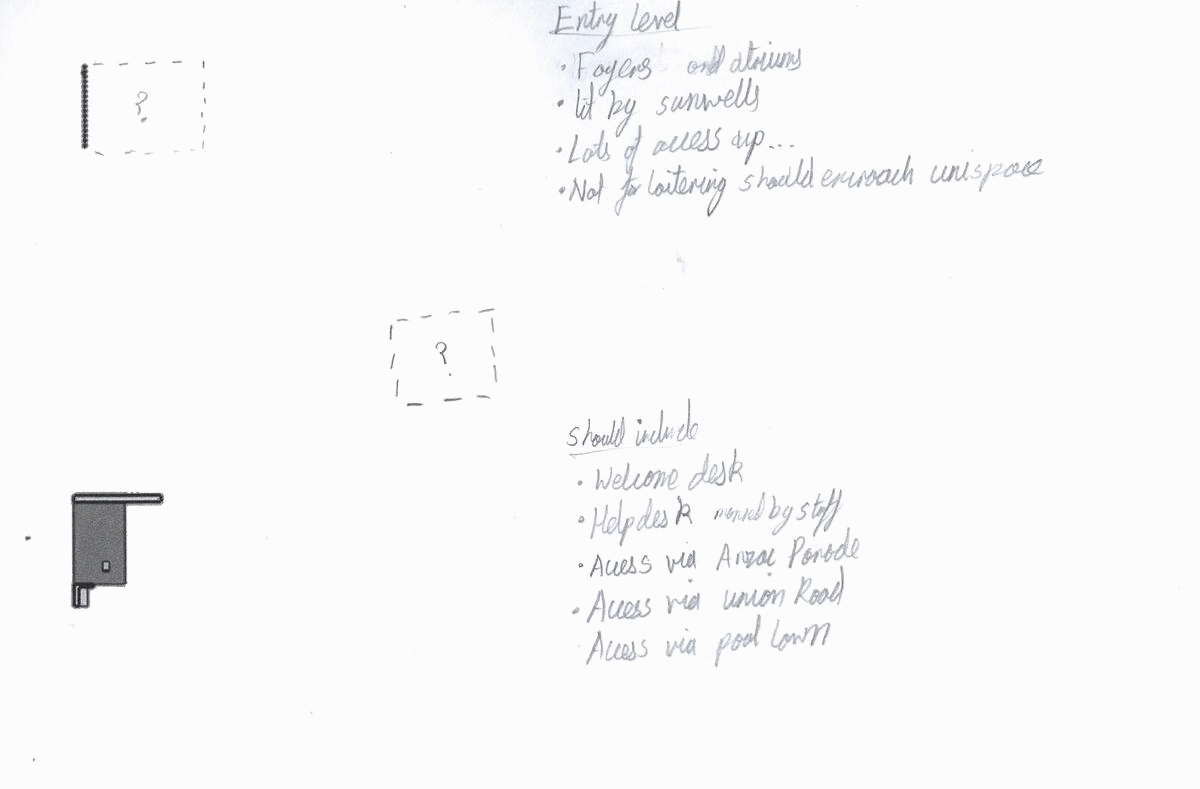 Entry Level
?
• Foyers and atriums
• lit by sunwells
• Lots of access up...
• Not for loitering should encroach unispace
?
Should include
• Welcome desk
• Helpdesk manned by staff
• Access via Anzac Parade
• Access via union Road
• Access via pool Lawn